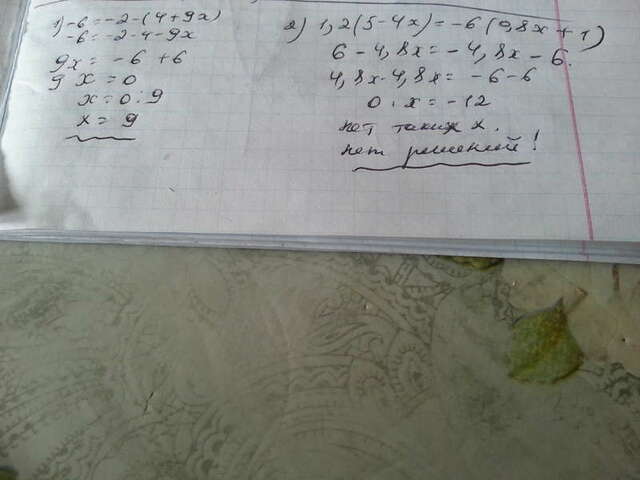 1) -6 = -2-(4+9x)
-6 = -2-4-9x
9x = -6 +6
9 x = 0
x = 0 : 9
x = 9
2) 1,2(5-4x) = -6(0,8x+1)
6 - 4,8x = -4,8x - 6.
4,8x-4,8x = -6-6
0 . x = -12
нет таких x.
нет решений!